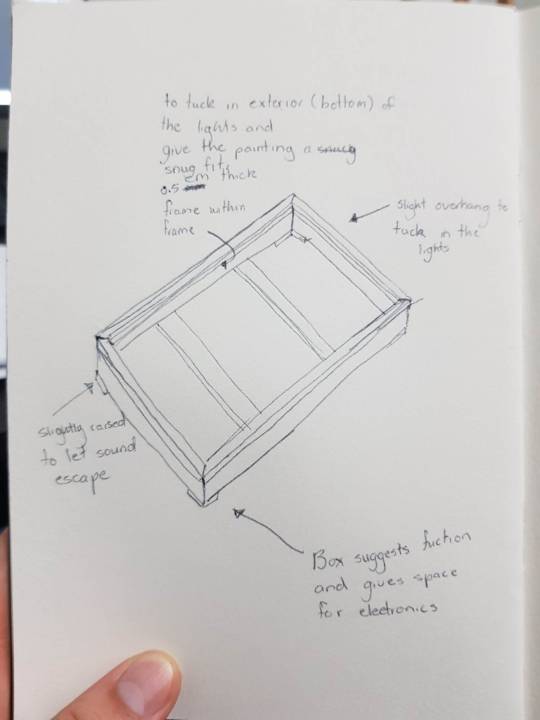 to tuck in exterior (bottom) of
the lights and
give the painting a snug
snug fit,
0.5 cm thick
frame within
frame
slight overhang to
tuck in the
lights
slightly raised
to let sound
escape
Box suggests fuction
and gives space
for electronics